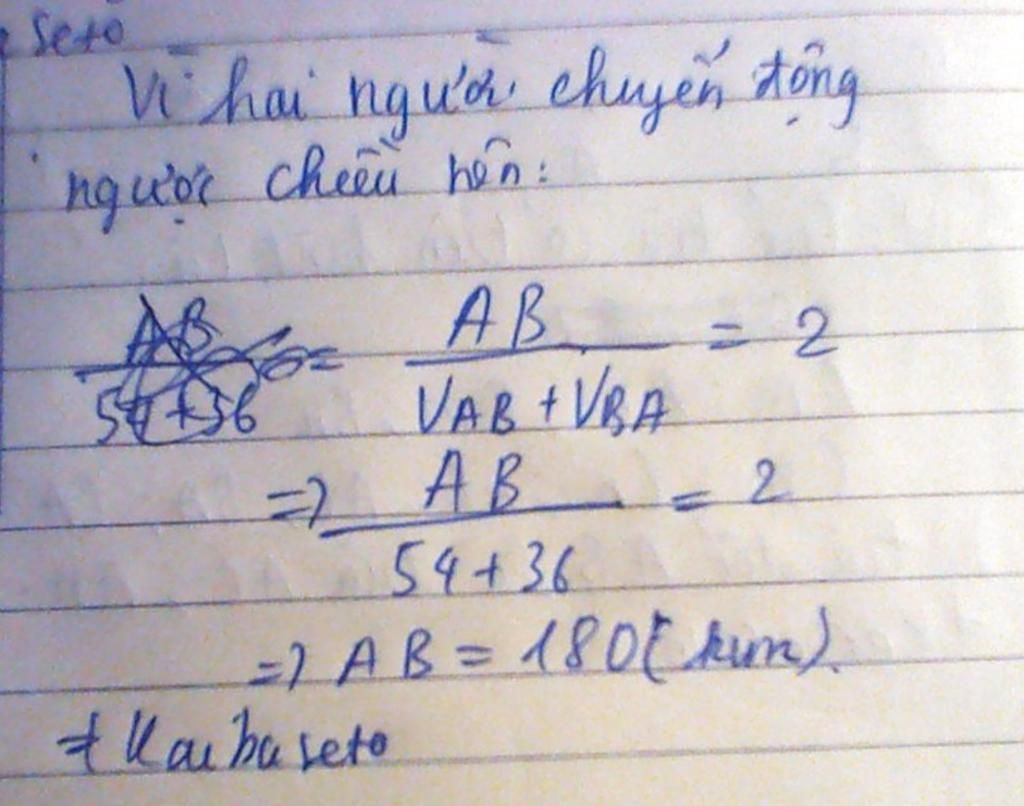 seto
Vì hai người chuyển động
ngược chiều nên:
AB / 54+36 = AB / VAB + VBA = 2
=> AB / 54+36 = 2
=> AB = 180 (km).
# Kaibaseto